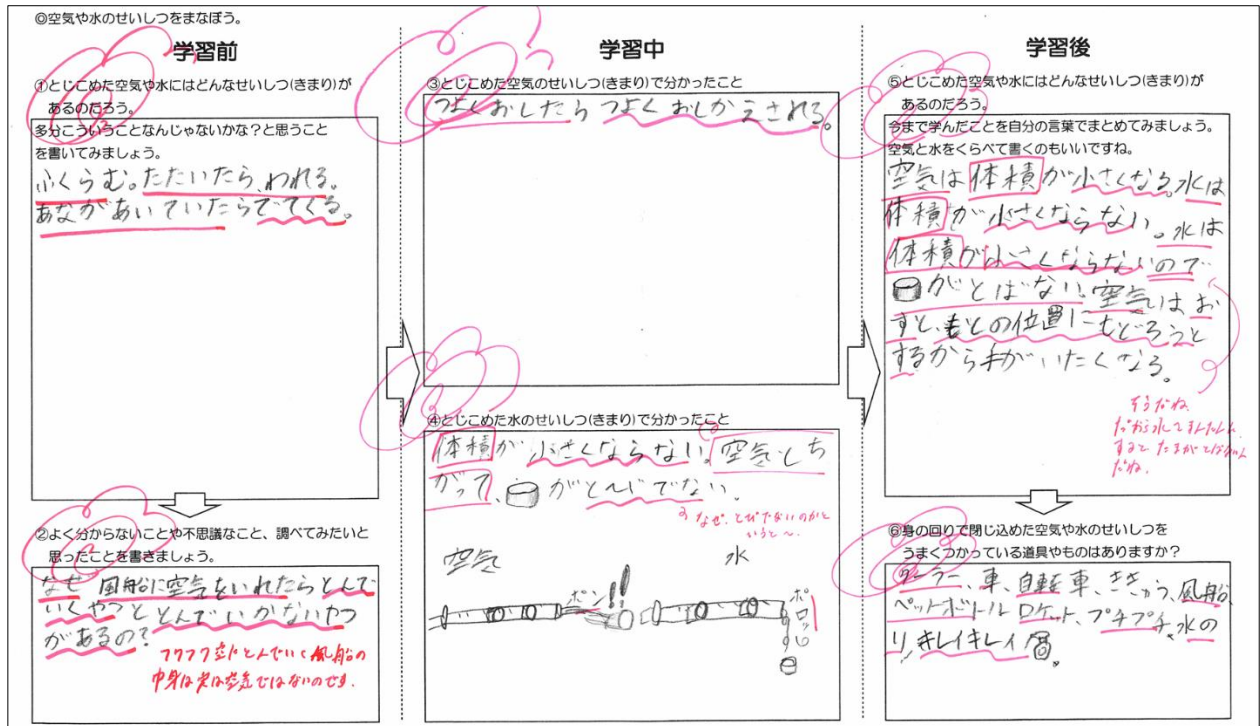 ◎空気や水のせいしつをまなぼう。
学習前
①とじこめた空気や水にはどんなせいしつ(きまり)が
あるのだろう。
多分こういうことなんじゃないかな?と思うこと
を書いてみましょう。
ふくらむ。たたいたら、われる。
あながあいていたらでてくる。
②よく分からないことや不思議なこと、調べてみたいと
思ったことを書きましょう。
なぜ 風船に空気をいれたらとんで
いくやつと とんでいかないやつ
があるの?
フワフワ空にとんでいく風船の
中身は実は空気ではないのです。
学習中
③とじこめた空気のせいしつ(きまり)で分かったこと
つよくおしたら つよく おしかえされる。
④とじこめた水のせいしつ(きまり)で分かったこと
体積が 小さくならない。空気とち
がって、 がとんででない。
なぜ、とびでないのかと
いうと〜.
空気
水
ポン!!
ポロッ
学習後
⑤とじこめた空気や水にはどんなせいしつ(きまり)が
あるのだろう。
今まで学んだことを自分の言葉でまとめてみましょう。
空気と水をくらべて書くのもいいですね。
空気は 体積 が小さくなる。水は
体積 が 小さくならない。水は
体積が小さくならないので
がとばない。空気は お
すと、もとの位置にもどろうと
するから手がいたくなる。
そうだね
すると たまがとばないん
だね.
⑥身の回りで閉じ込めた空気や水のせいしつを
うまくつかっている道具やものはありますか?
クーラー、車、自転車、ききゅう、風船、
ペットボトル ロケット、プチプチ、水の
り、キレイキレイ